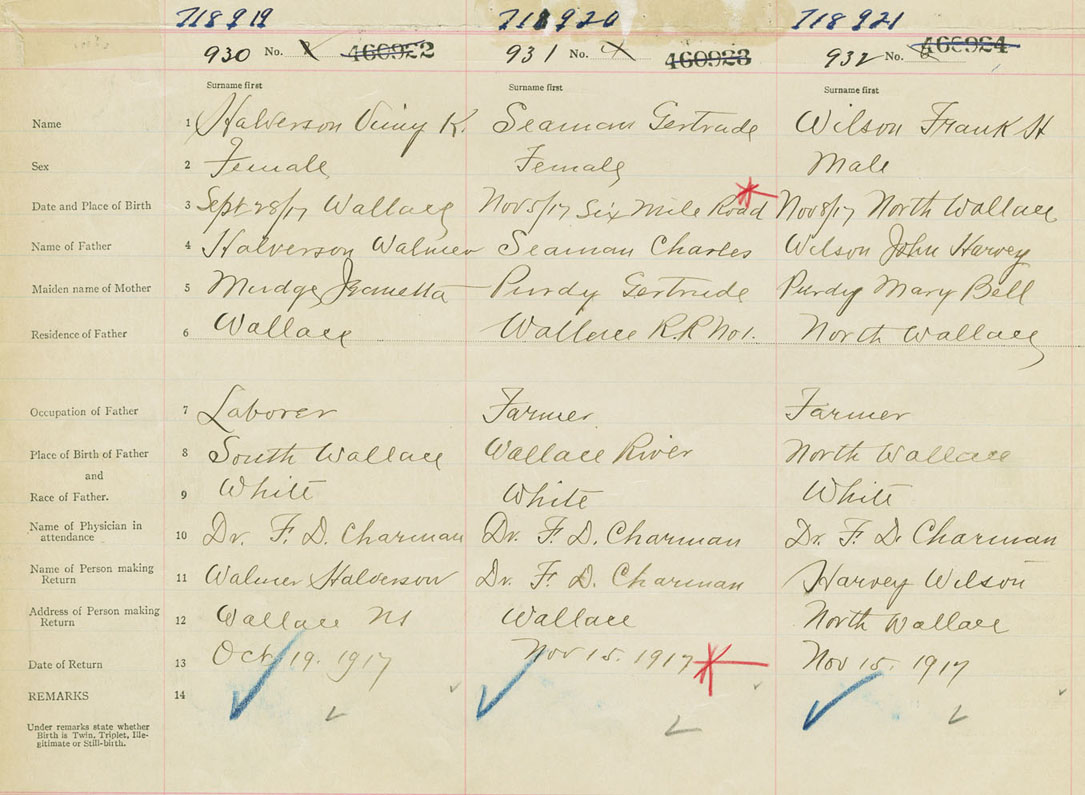 718919 718920 718921
930 No. 460922 931 No. 460923 932 No. 460924
Surname first Surname first Surname first
Name 1 Halverson Vimy K. Seaman Gertrude Wilson Frank H
Sex 2 Female Female Male
Date and Place of Birth 3 Sept 28/17 Wallace Nov 5/17 Six Mile Road Nov 8/17 North Wallace
Name of Father 4 Halverson Walmer Seaman Charles Wilson John Harvey
Maiden name of Mother 5 Mudge Purdy Gertrude Purdy Mary Bell
Residence of Father 6 Wallace Wallace R.R No 1. North Wallace
Occupation of Father 7 Laborer Farmer Farmer
Place of Birth of Father 8 South Wallace Wallace River North Wallace
and
Race of Father. 9 White White White
Name of Physician in
attendance 10 Dr. F. D. Charman Dr. F. D. Charman Dr. F. D. Charman
Name of Person making
Return 11 Walmer Halverson Dr. F. D. Charman Harvey Wilson
Address of Person making
Return 12 Wallace NS Wallace North Wallace
Date of Return 13 Oct 19. 1917 Nov 15. 1917 Nov 15. 1917
REMARKS 14
Under remarks state whether
Birth is Twin, Triplet, Ille-
gitimate or Still-birth.